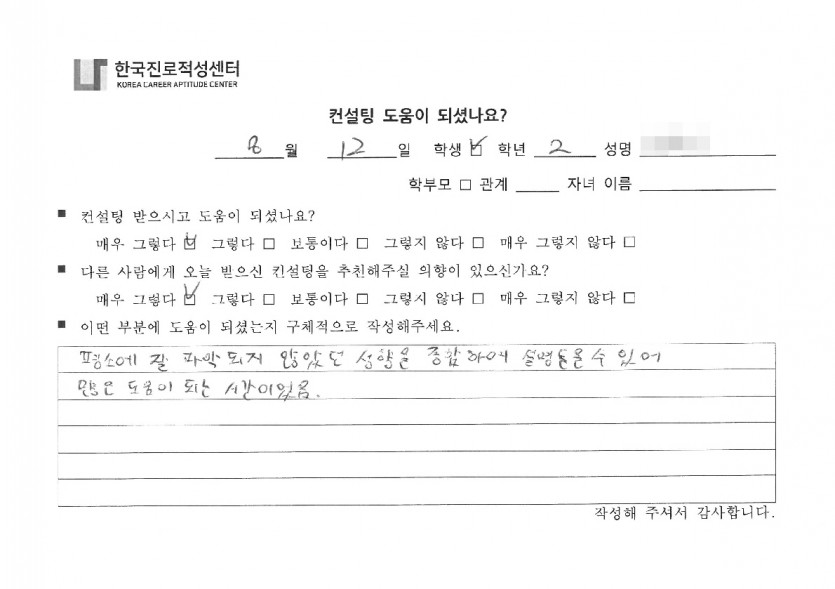 한국진로적성센터
KOREA CAREER APTITUDE CENTER
컨설팅 도움이 되셨나요?
8 월 12 일 학생 ☑ 학년 2 성명
학부모 □ 관계 자녀 이름
■ 컨설팅 받으시고 도움이 되셨나요?
매우 그렇다 ☑ 그렇다 □ 보통이다 □ 그렇지 않다 □ 매우 그렇지 않다 □
■ 다른 사람에게 오늘 받으신 컨설팅을 추천해주실 의향이 있으신가요?
매우 그렇다 ☑ 그렇다 □ 보통이다 □ 그렇지 않다 □ 매우 그렇지 않다 □
■ 어떤 부분에 도움이 되셨는지 구체적으로 작성해주세요.
평소에 잘 파악되지 않았던 성향을 종합하여 설명들을 수 있어
많은 도움이 되는 시간이었음.
작성해 주셔서 감사합니다.